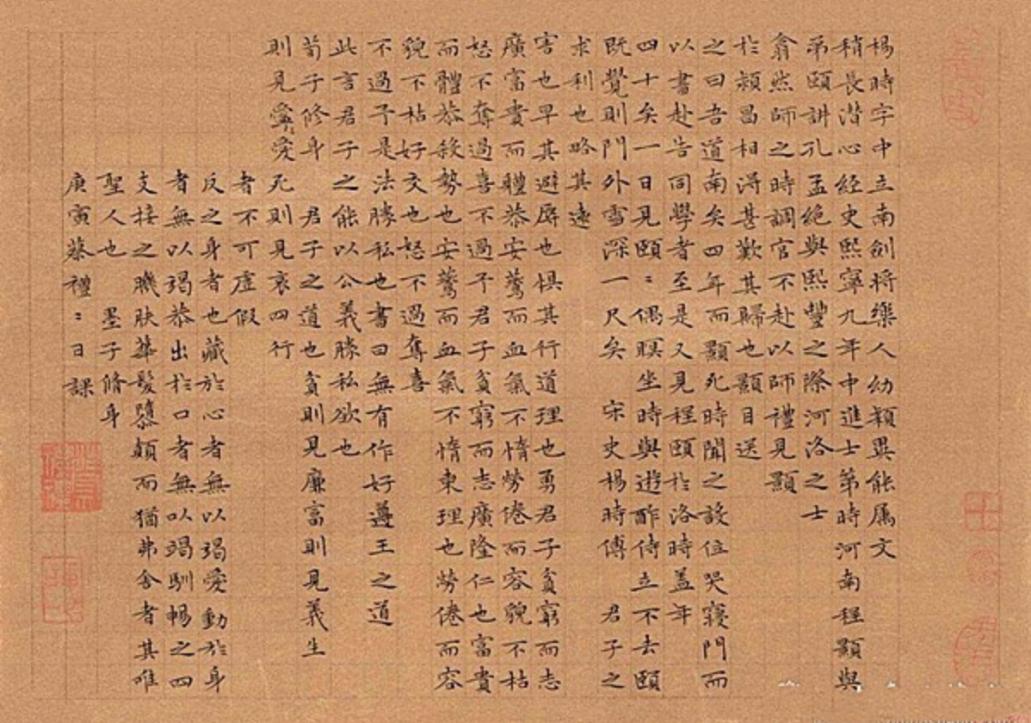 楊時字中立南劍將樂人幼穎異能屬文
稍長潛心經史熙寧九年中進士第時河南程顥與
弟頤講孔孟絕與熙豐之際河洛之士
翕然師之時調官不赴以師禮見顥
於潁昌相得甚歡其歸也顥目送
之曰吾道南矣四年而顥死時聞之設位哭寢門而
以書赴告同學者至是又見程頤於洛時蓋年
四十矣一日見頤〻偶瞑坐時與遊酢侍立不去頤
既覺則門外雪深一尺矣 宋史楊時傳 君子之
求利也略其遠
害也早其避辱也懼其行道理也勇君子貧窮而志
廣富貴而體恭安鷰而血氣不惰勞倦而容貌不枯
怒不奪過喜不過予君子貧窮而志廣隆仁也富貴
而體恭殺勢也安鷰而血氣不惰柬理也勞倦而容
貌不枯好交也怒不過奪喜
不過予是法勝私也書曰無有作好遵王之道
此言君子之能以公義勝私欲也
荀子修身 君子之道也貧則見廉富則見義生
則見愛愛死則見哀四行
者不可虛假
反之身者也藏於心者無以竭愛動於身
者無以竭恭出於口者無以竭馴暢之四
支接之肌膚華髮隳顛而猶弗舍者其唯
聖人也 墨子脩身
庚寅蔡禮〻日課